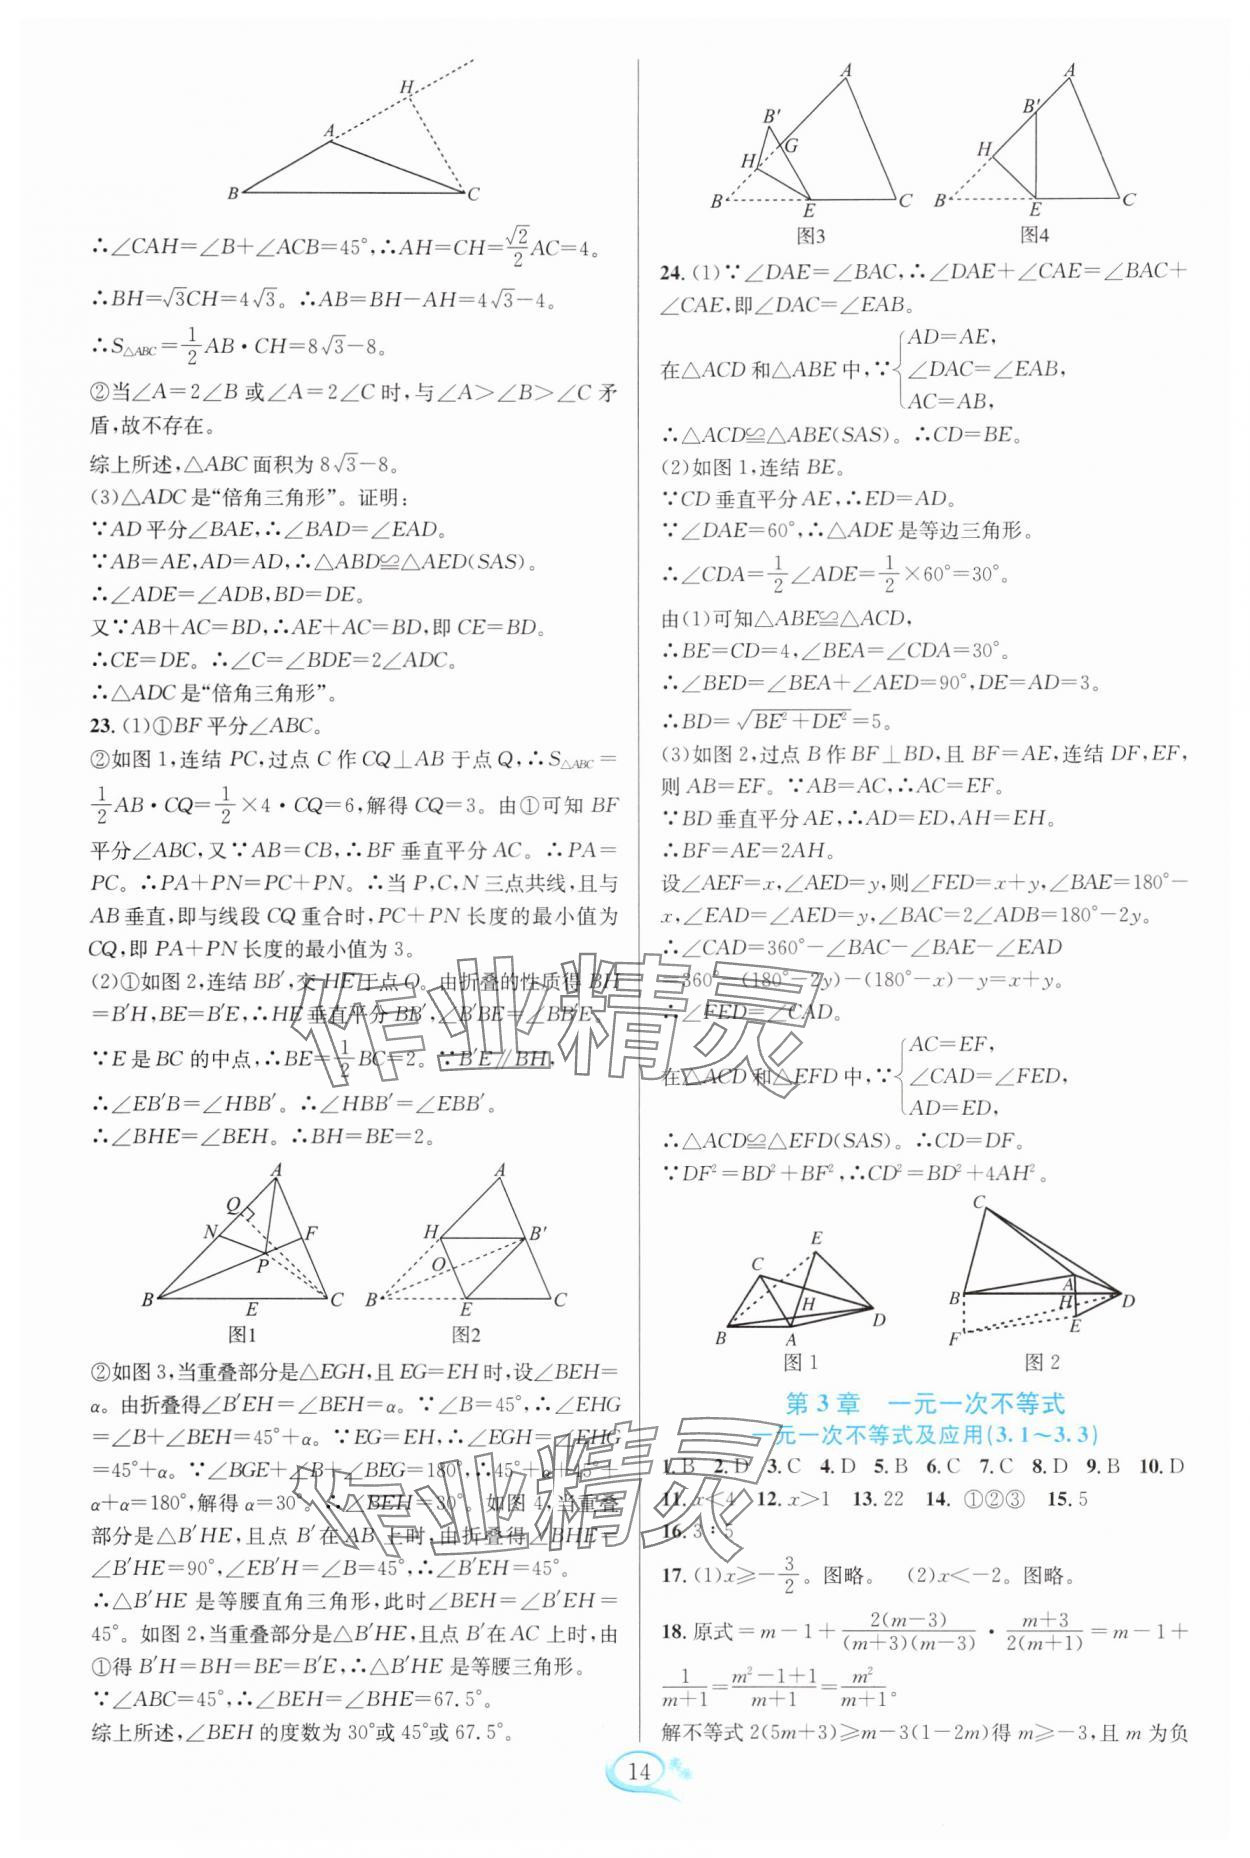 H
A
B
C
∴∠CAH=∠B+∠ACB=45°,∴AH=CH=√2/2AC=4。
∴BH=√3CH=4√3。∴AB=BH-AH=4√3-4。
∴S△ABC=1/2AB·CH=8√3-8。
②当∠A=2∠B或∠A=2∠C时,与∠A>∠B>∠C矛
盾,故不存在。
综上所述,△ABC面积为8√3-8。
(3)△ADC是“倍角三角形”。证明:
∵AD平分∠BAE,∴∠BAD=∠EAD。
∵AB=AE,AD=AD,∴△ABD≌△AED(SAS)。
∴∠ADE=∠ADB,BD=DE。
又∵AB+AC=BD,∴AE+AC=BD,即CE=BD。
∴CE=DE。∴∠C=∠BDE=2∠ADC。
∴△ADC是“倍角三角形”。
23.(1)①BF平分∠ABC。
②如图1,连结PC,过点C作CQ⊥AB于点Q,∴S△ABC=
1/2AB·CQ=1/2×4·CQ=6,解得CQ=3。由①可知BF
平分∠ABC,又∵AB=CB,∴BF垂直平分AC。∴PA=
PC。∴PA+PN=PC+PN。∴当P,C,N三点共线,且与
AB垂直,即与线段CQ重合时,PC+PN长度的最小值为
CQ,即PA+PN长度的最小值为3。
(2)①如图2,连结BB′,交HE于点O。由折叠的性质得BH
=B′H,BE=B′E,∴HE垂直平分BB′,∠B′BE=∠BB′E。
∵E是BC的中点,∴BE=1/2BC=2。∵B′E∥BH,
∴∠EB′B=∠HBB′。∴∠HBB′=∠EBB′。
∴∠BHE=∠BEH。∴BH=BE=2。
A
Q
N
F
P
B
E
C
图1
A
H
B′
O
B
E
C
图2
②如图3,当重叠部分是△EGH,且EG=EH时,设∠BEH=
α。由折叠得∠B′EH=∠BEH=α。∵∠B=45°,∴∠EHG
=∠B+∠BEH=45°+α。∵EG=EH,∴∠EGH=∠EHG
=45°+α。∵∠BGE+∠B+∠BEG=180°,∴45°+α+45°+
α+α=180°,解得α=30°。∴∠BEH=30°。如图4,当重叠
部分是△B′HE,且点B′在AB上时,由折叠得∠BHE=
∠B′HE=90°,∠EB′H=∠B=45°,∴∠B′EH=45°。
∴△B′HE是等腰直角三角形,此时∠BEH=∠B′EH=
45°。如图2,当重叠部分是△B′HE,且点B′在AC上时,由
①得B′H=BH=BE=B′E,∴△B′HE是等腰三角形。
∵∠ABC=45°,∴∠BEH=∠BHE=67.5°。
综上所述,∠BEH的度数为30°或45°或67.5°。
A
B′
G
H
B
E
C
图3
A
B′
H
B
E
C
图4
24.(1)∵∠DAE=∠BAC,∴∠DAE+∠CAE=∠BAC+
∠CAE,即∠DAC=∠EAB。
在△ACD和△ABE中,∵{AD=AE,
∠DAC=∠EAB,
AC=AB,
∴△ACD≌△ABE(SAS)。∴CD=BE。
(2)如图1,连结BE。
∵CD垂直平分AE,∴ED=AD。
∵∠DAE=60°,∴△ADE是等边三角形。
∴∠CDA=1/2∠ADE=1/2×60°=30°。
由(1)可知△ABE≌△ACD,
∴BE=CD=4,∠BEA=∠CDA=30°。
∴∠BED=∠BEA+∠AED=90°,DE=AD=3。
∴BD=√(BE²+DE²)=5。
(3)如图2,过点B作BF⊥BD,且BF=AE,连结DF,EF,
则AB=EF。∵AB=AC,∴AC=EF。
∵BD垂直平分AE,∴AD=ED,AH=EH。
∴BF=AE=2AH。
设∠AEF=x,∠AED=y,则∠FED=x+y,∠BAE=180°-
x,∠EAD=∠AED=y,∠BAC=2∠ADB=180°-2y。
∴∠CAD=360°-∠BAC-∠BAE-∠EAD
=360°-(180°-2y)-(180°-x)-y=x+y。
∴∠FED=∠CAD。
在△ACD和△EFD中,∵{AC=EF,
∠CAD=∠FED,
AD=ED,
∴△ACD≌△EFD(SAS)。∴CD=DF。
∵DF²=BD²+BF²,∴CD²=BD²+4AH²。
E
C
H
B
A
D
图1
C
B
A
H
D
F
E
图2
第3章 一元一次不等式
一元一次不等式及应用(3.1~3.3)
1.B 2.D 3.C 4.D 5.B 6.C 7.C 8.D 9.B 10.D
11.x<4 12.x>1 13.22 14.①②③ 15.5
16.3∶5
17.(1)x≥-3/2。图略。 (2)x<-2。图略。
18.原式=m-1+2(m-3)/(m+3)(m-3)·(m+3)/2(m+1)=m-1+
1/(m+1)=(m²-1+1)/(m+1)=m²/(m+1)。
解不等式2(5m+3)≥m-3(1-2m)得m≥-3,且m为负
14
作业精灵
作业精灵